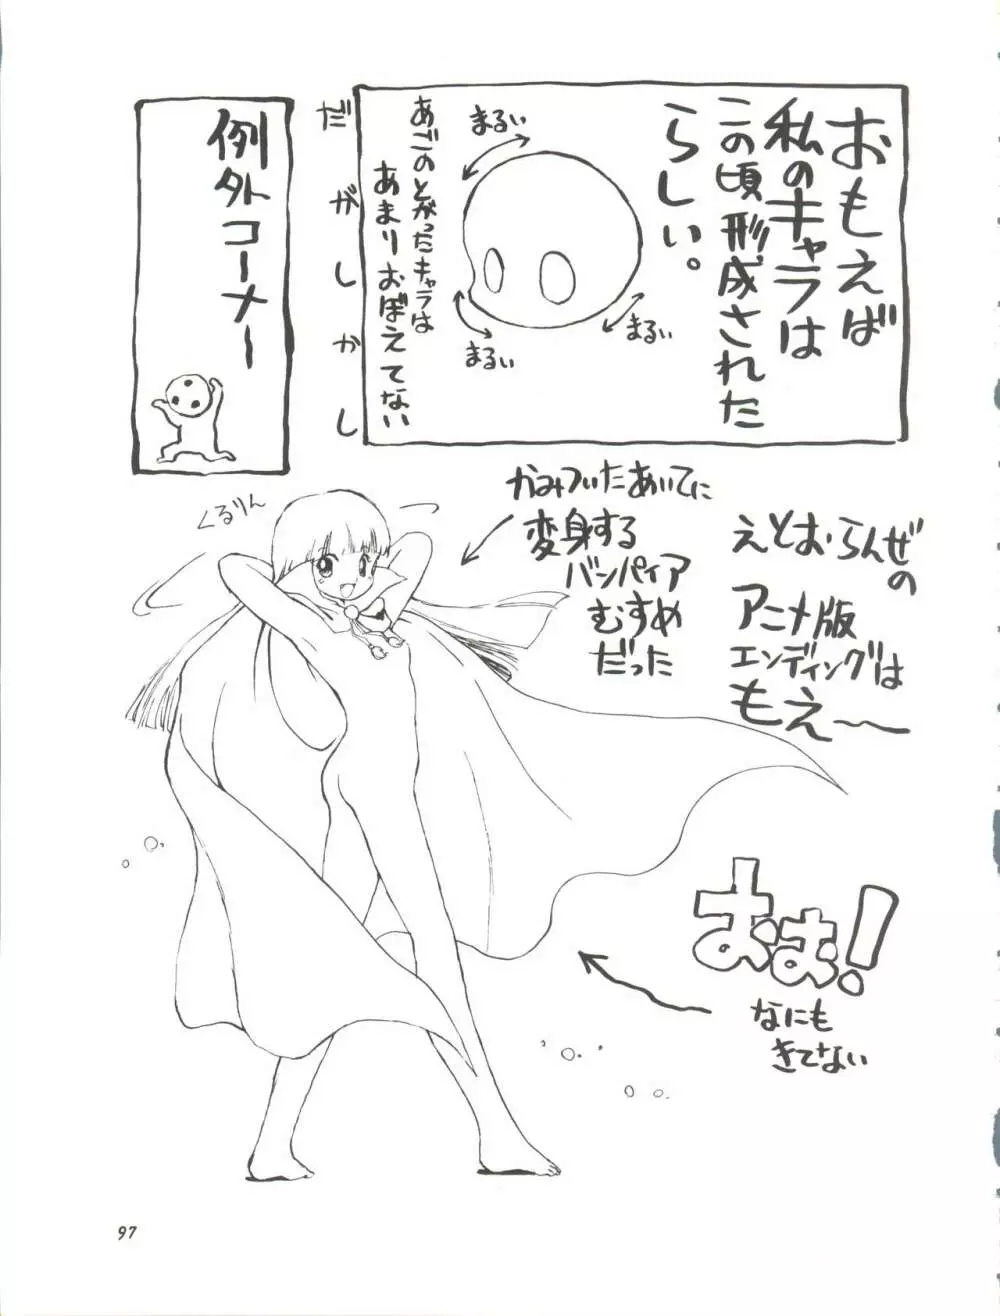 おもえば
私のキャラは
この頃形成された
らしい。
まるい
まるい
まるい
あごのとがったキャラは
あまりおぼえてない
だがしかし
例外コーナー
くるりん
かみついたあいてに
変身する
バンパイア
むすめ
だった
えとお・らんぜ
の
アニメ版
エンディングは
もえ〜
おぉ!
なにも
きてない
97